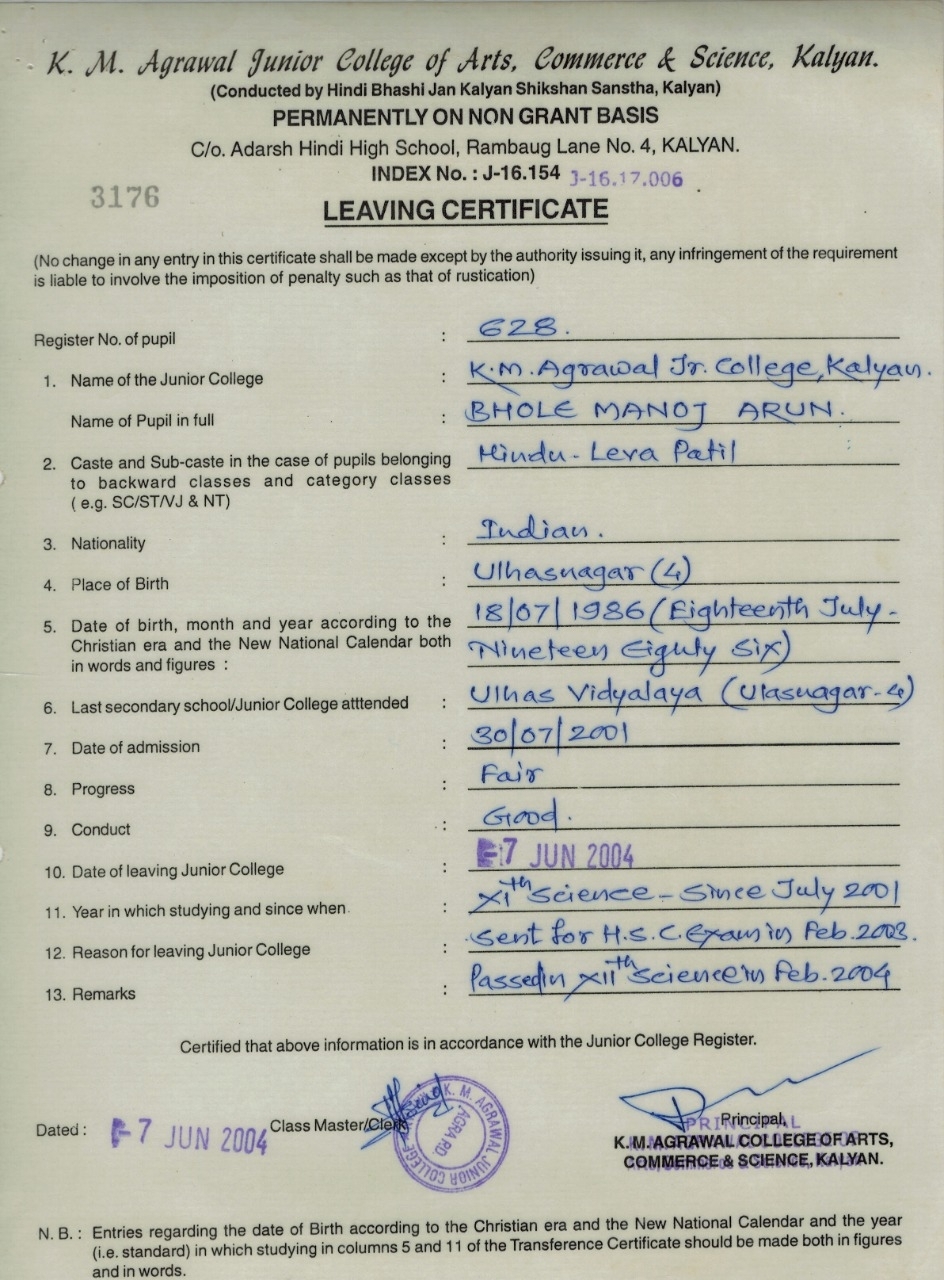 K. M. Agrawal Junior College of Arts, Commerce & Science, Kalyan.
(Conducted by Hindi Bhashi Jan Kalyan Shikshan Sanstha, Kalyan)
PERMANENTLY ON NON GRANT BASIS
C/o. Adarsh Hindi High School, Rambaug Lane No. 4, KALYAN.
INDEX No. : J-16.154 J-16.17.006
3176
LEAVING CERTIFICATE
(No change in any entry in this certificate shall be made except by the authority issuing it, any infringement of the requirement
is liable to involve the imposition of penalty such as that of rustication)
Register No. of pupil : 628.
1. Name of the Junior College : K.M. Agrawal Jr. College, Kalyan.
Name of Pupil in full : BHOLE MANOJ ARUN.
2. Caste and Sub-caste in the case of pupils belonging : Hindu - Leva Patil
to backward classes and category classes
( e.g. SC/ST/VJ & NT)
3. Nationality : Indian.
4. Place of Birth : Ulhasnagar (4)
5. Date of birth, month and year according to the : 18/07/1986 (Eighteenth July -
Christian era and the New National Calendar both Nineteen Eighty Six)
in words and figures :
6. Last secondary school/Junior College atttended : Ulhas Vidyalaya (Ulasnagar-4)
7. Date of admission : 30/07/2001
8. Progress : Fair
9. Conduct : Good.
10. Date of leaving Junior College : -7 JUN 2004
11. Year in which studying and since when : XIth Science - Since July 2001
12. Reason for leaving Junior College : Sent for H.S.C. Exam in Feb. 2003.
13. Remarks : Passed in XIIth Science in Feb. 2004
Certified that above information is in accordance with the Junior College Register.
Dated : -7 JUN 2004 Class Master/Clerk
K. M. AGRAWAL JUNIOR COLLEGE
AGRA RD.
Principal,
PRINCIPAL
K.M.AGRAWAL COLLEGE OF ARTS,
COMMERCE & SCIENCE, KALYAN.
N. B. : Entries regarding the date of Birth according to the Christian era and the New National Calendar and the year
(i.e. standard) in which studying in columns 5 and 11 of the Transference Certificate should be made both in figures
and in words.